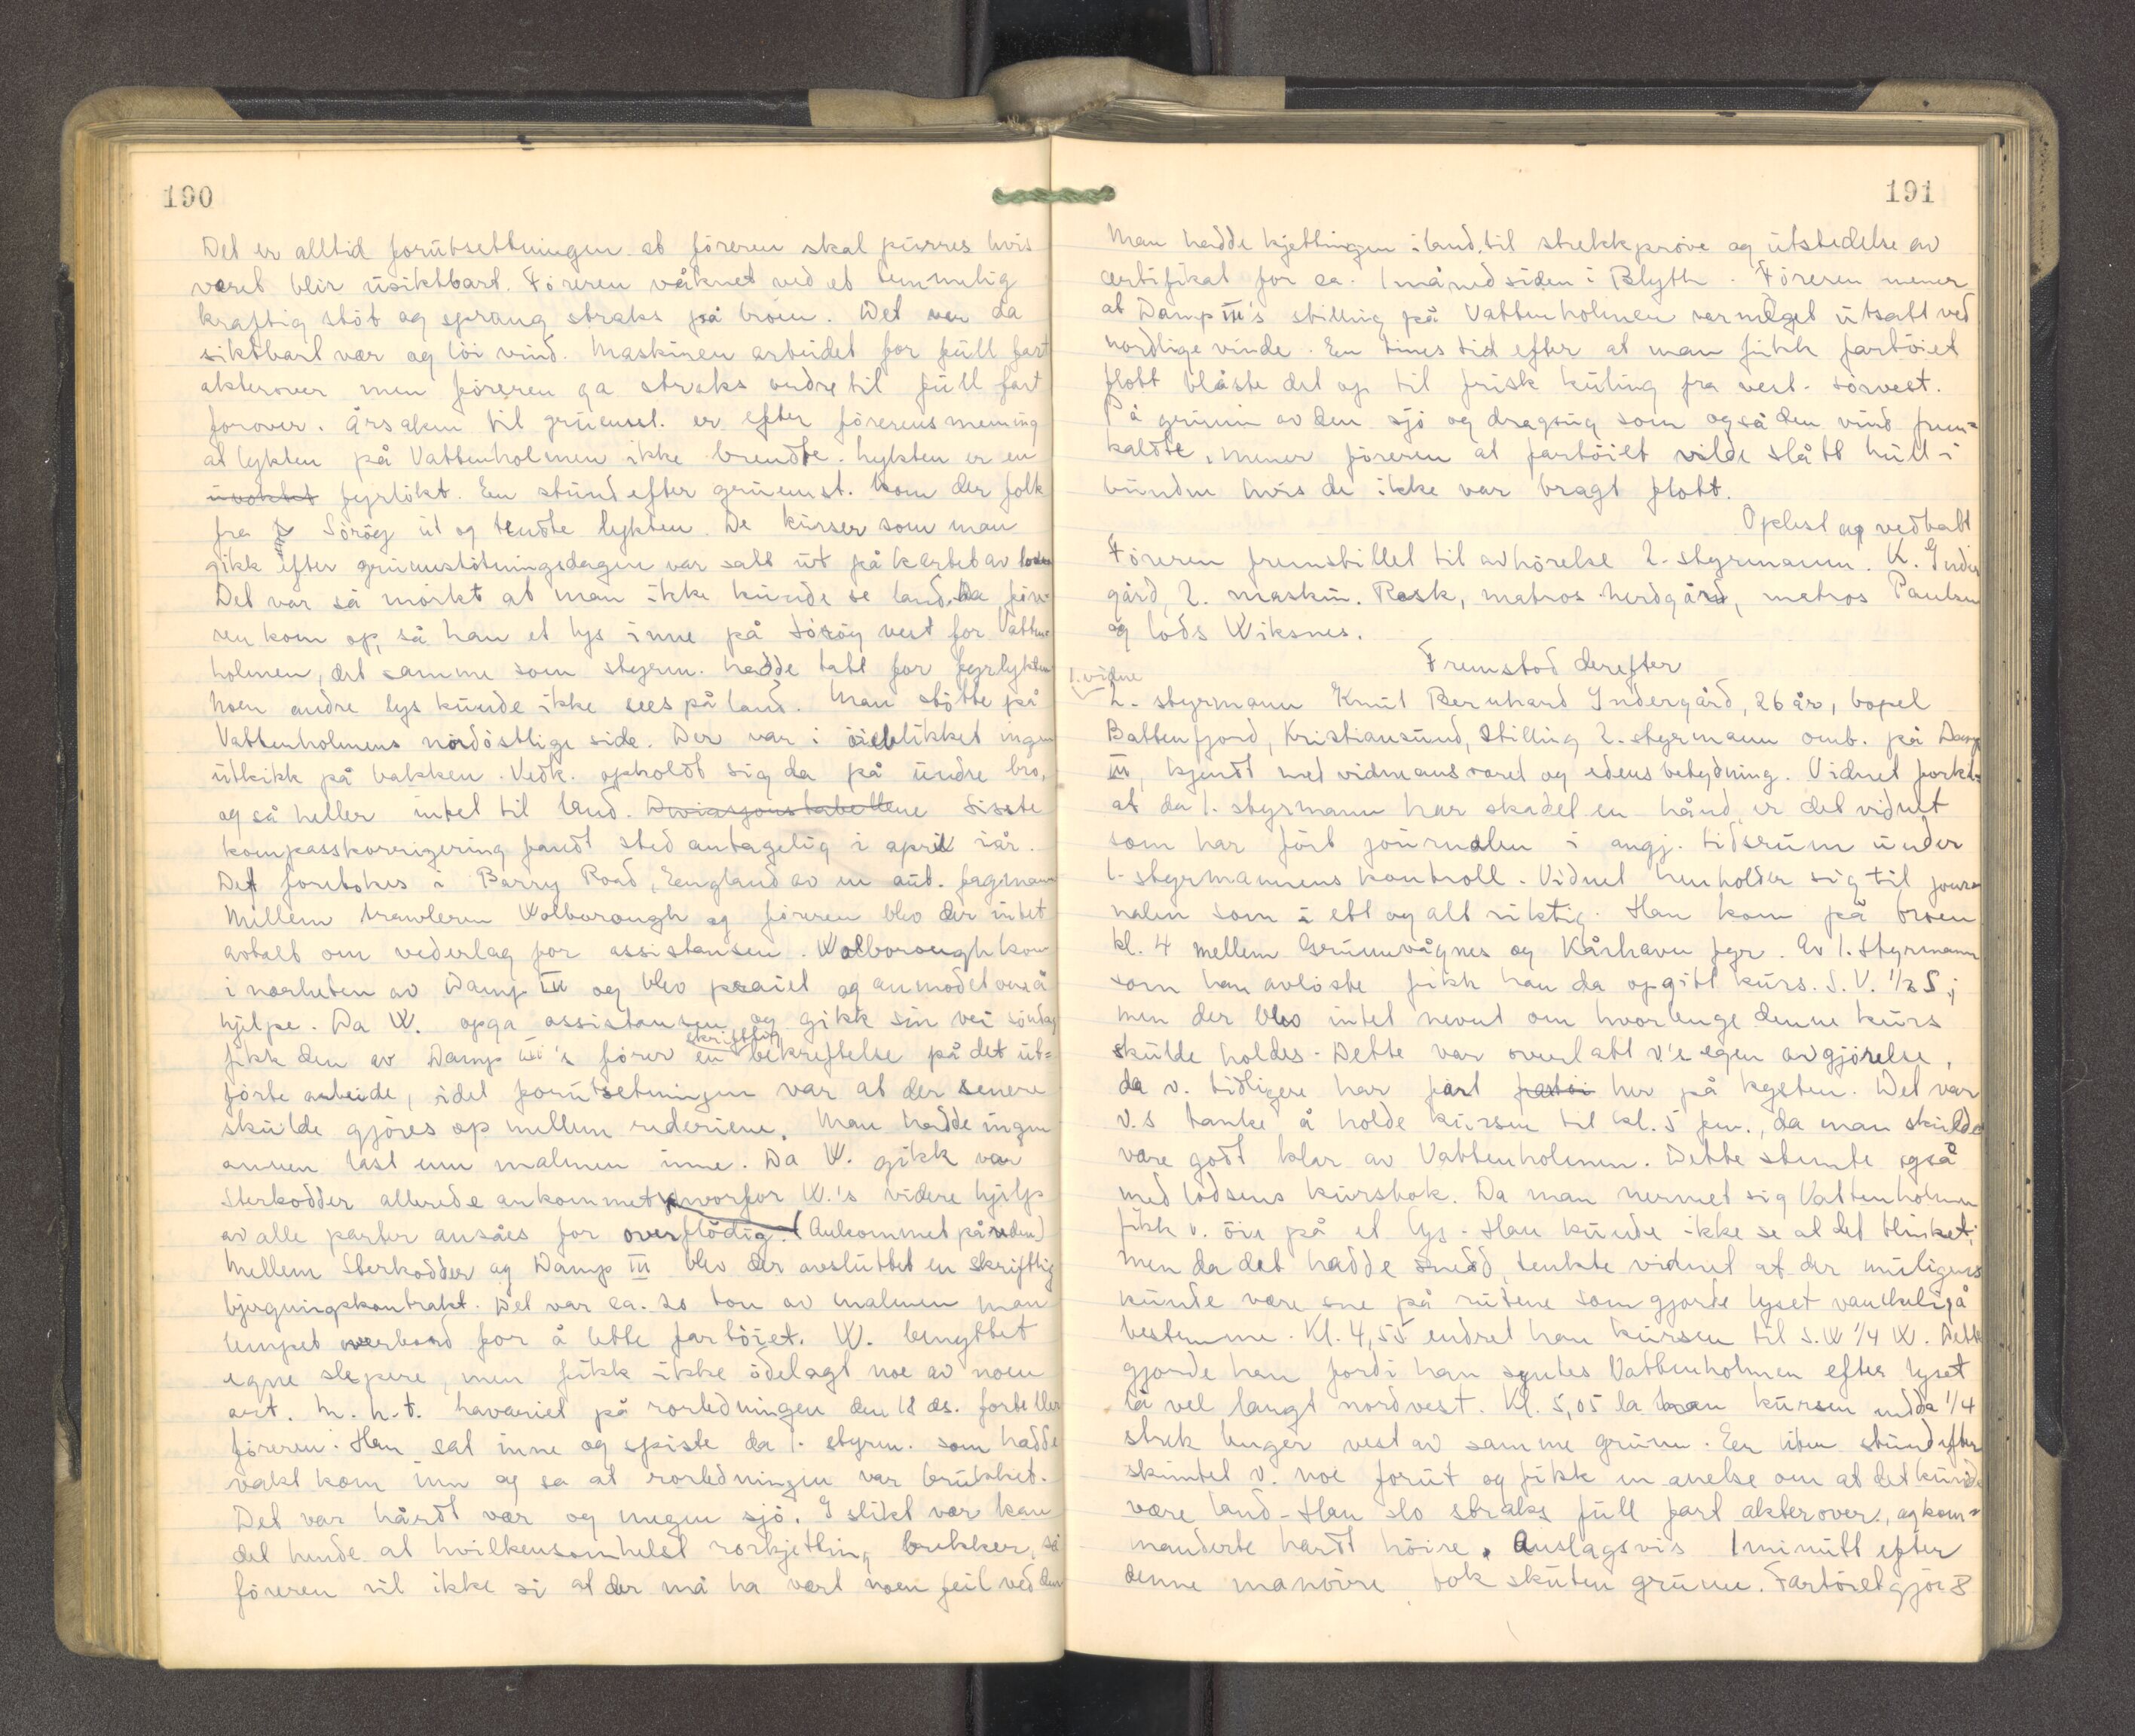 190
Det er alltid forutsettningen at föreren skal purres hvis
veret blir usiktbart. Föreren våknet ved et temmelig
kraftig stöt og sprang straks på broen. Det var da
siktbart vær og löi vind. Maskinen arbeidet for full fart
akterover men föreren ga straks ordre til full fart
forover. Årsaken til grunnst. er efter förerens mening
at lykten på Vattenholmen ikke brendte. Lykten er en
uvoktet fyrlökt. En stund efter grunnst. kom der folk
fra Söröy ut og tendte lykten. De kurser som man
gikk efter grunnstötningsdagen var satt ut på kartet av losen
Det var så mörkt at man ikke kunde se land. Da före-
ren kom op, så han et lys inne på Söröy vest for Vatten-
holmen, det samme som styrm. hadde tatt for fyrlykten
Noen andre lys kunde ikke sees på land. Man stötte på
Vattenholmens nordöstlige side. Der var i öieblikket ingen
utkikk på bakken. Vedk. opholdt sig da på undre bro,
og så heller intet til land. Deviasjonstabellene Siste
kompasskorrigering fandt sted antagelig i april iår.
Det foretokes i Barry Road, England av en aut. fagmann
Mellem trawleren Wolborough og föreren blev der intet
avtalt om vederlag for assistansen. Wolborough kom
i nærheten av Damp III og blev praiet og anmodet om å
hjelpe. Da W. opga assistansen og gikk sin vei söndag
skriftlig
fikk den av Damp III's förer en bekreftelse på det ut=
förte arbeide, idet forutsetningen var at der senere
skulde gjöres op mellem rederiene. Man hadde ingen
annen last enn malmen inne. Da W. gikk var
Sterkodder allerede ankommet hvorfor W.'s videre hjelp
av alle parter ansåes for overflödig. (Ankommet på reden)
Mellem Sterkodder og Damp III blev der avsluttet en skriftlig
bjergningskontrakt. Det var ca. 20 ton av malmen man
lempet overbord for å lette fartöiet. W. benyttet
egne slepere, men fikk ikke ödelagt noe av noen
art. M.h.t. havariet på rorledningen den 18 ds. forteller
föreren: Han sat inne og spiste da 1. styrm. som hadde
vakt kom inn og sa at rorledningen var brukket.
Det var hårdt vær og megen sjö. I slikt vær kan
det hende at hvilkensomhelst rorkjetting brekker, så
föreren vil ikke si at der må ha vert noen feil ved den
191
Man hadde kjettingen i land til strekkpröve og utstedelse av
certifikat for ca. 1 måned siden i Blyth. Föreren mener
at Damp III's stilling på Vattenholmen var meget utsatt ved
nordlige vinde. En times tid efter at man fikk fartöiet
flott blåste det op til frisk kuling fra vest-sörvest.
På grunn av den sjö og dragsug som også den vind frem=
kaldte, mener föreren at fartöiet vilde slått hull i
bunden hvis de ikke var bragt flott.
Oplest og vedtatt
Föreren fremstillet til avhörelse 2. styrmann. K. Inder
gård, 2. maskin. Rask, matros Herdgård, matros Paulsen
og lods Wiksnes.
Fremstod derefter
1. vidne
2. styrmann Knut Bernhard Indergård, 26 år, bopel
Battenfjord, Kristiansund, Stilling 2. styrmann omb. på Damp
III, kjendt med vidneansvaret og edens betydning. Vidnet forkl=
at da 1. styrmann har skadet en hånd, er det vidnet
som har fört journalen i angj. tidsrum under
1. styrmannens kontroll. Vidnet henholder sig til jour=
nalen som i ett og alt riktig. Han kom på broen
kl. 4 mellem Grunnvågnes og Kårhavn fyr. Av 1. Styrmann
som han avlöste fikk han da opgitt kurs. S.V. 1/2 S;
men der blev intet nevnt om hvorlenge denne kurs
skulde holdes. Dette var overlatt v's egen avgjörelse,
da v. tidligere har fart fartöi her på kysten. Det var
v.s tanke å holde kursen til kl. 5 fm., da man skulde
være godt klar av Vattenholmen. Dette stemte også
med lodsens kursbok. Da man nermet sig Vattenholmen
fikk v. öie på et lys. Han kunde ikke se at det blinket;
men da det hadde snedd, tenkte vidnet at der muligens
kunde være sne på rutene som gjorde lyset vanskelig å
bestemme. Kl. 4,55 endret han kursen til S.W 1/4 W. Dette
gjorde han fordi han syntes Vattenholmen efter lyset
lå vel langt nordvest. Kl. 5,05 la han kursen endda 1/4
strek lenger vest av samme grunn. En liten stund efter
skimtet v. noe forut og fikk en anelse om at det kunde
være land. Han slo straks full fart akterover, og kom=
manderte hardt höire. Anslagsvis 1 minutt efter
denne manövre tok skuten grunn. Fartöiet gjör 8